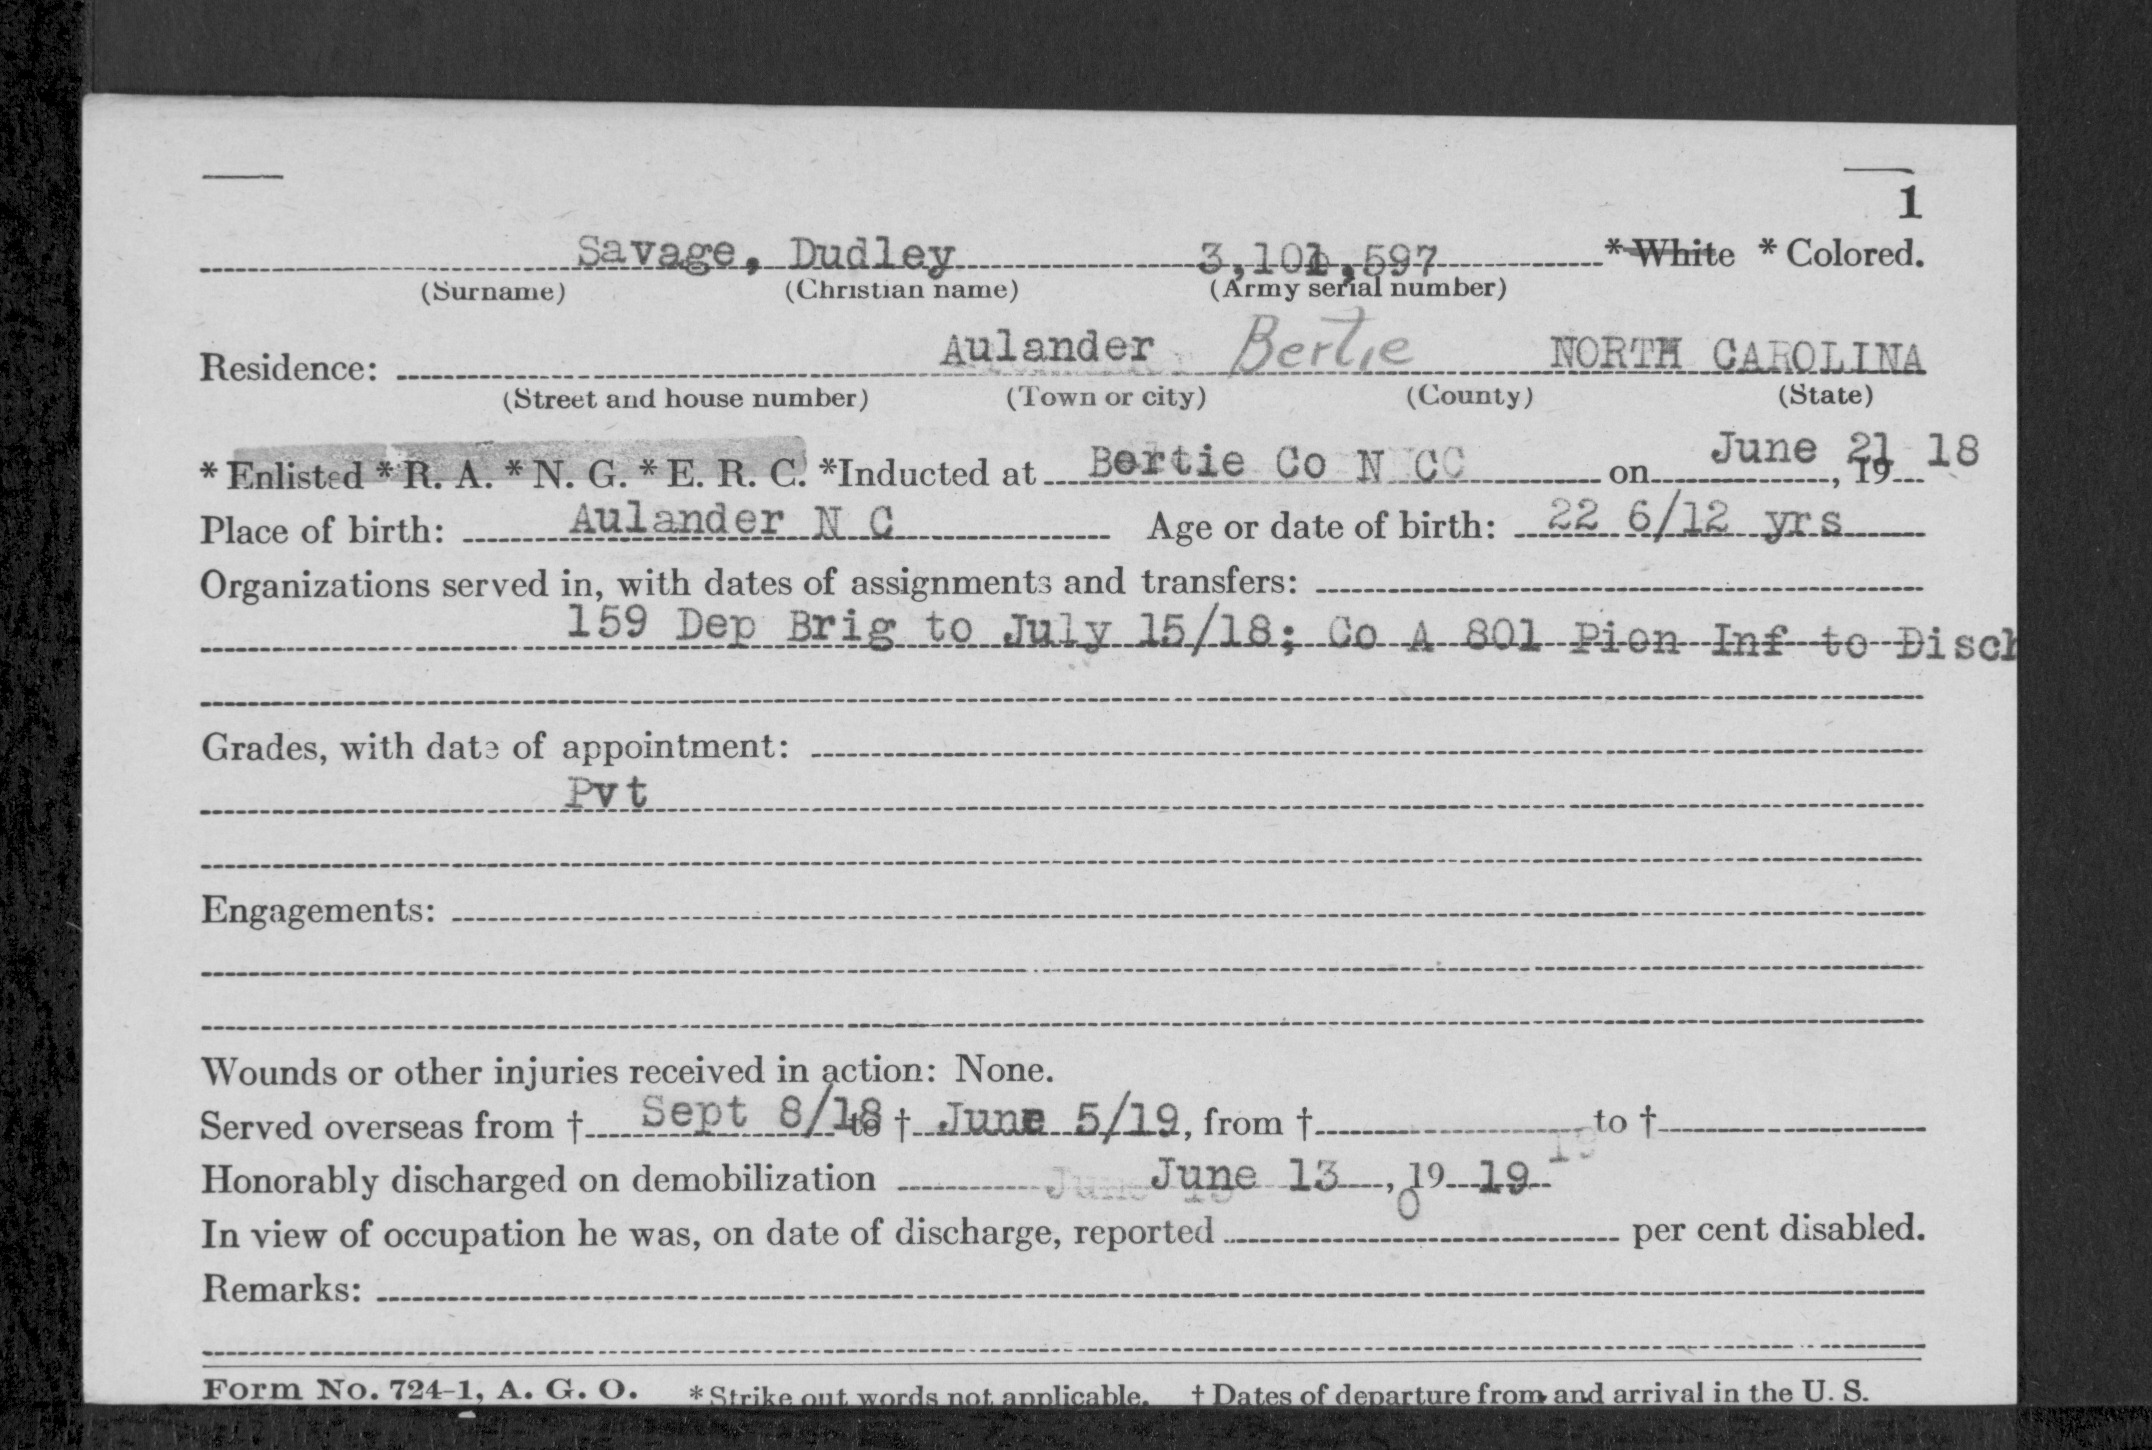 1
Savage, Dudley 3,101,597 * White * Colored.
(Surname) (Christian name) (Army serial number)
Residence: Aulander Bertie NORTH CAROLINA
(Street and house number) (Town or city) (County) (State)
* Enlisted * R. A. * N. G. * E. R. C. *Inducted at Bertie Co N CC on June 21, 19 18
Place of birth: Aulander N C Age or date of birth: 22 6/12 yrs
Organizations served in, with dates of assignments and transfers:
159 Dep Brig to July 15/18; Co A 801 Pion Inf to Disch
Grades, with date of appointment:
Pvt
Engagements:
Wounds or other injuries received in action: None.
Served overseas from † Sept 8/18 to † June 5/19, from † to †
Honorably discharged on demobilization June 13, 19 19
In view of occupation he was, on date of discharge, reported 0 per cent disabled.
Remarks:
Form No. 724-1, A. G. O. * Strike out words not applicable. † Dates of departure from and arrival in the U. S.